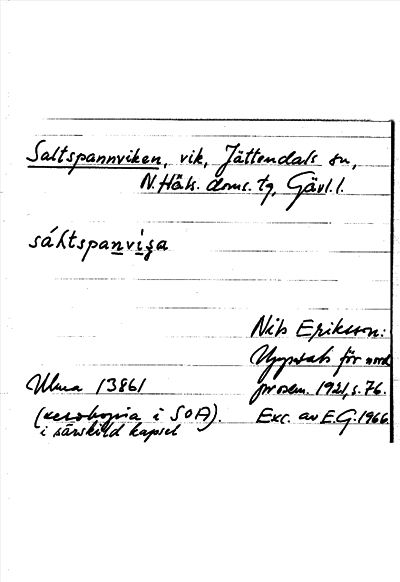 Saltspannviken, vik, Jättendals sn,
N. Häls. doms. tg, Gävl. l.
sáḷtspanviga
Nils Eriksson:
Uppsats för nord.
Ulma 13861
prosem. 1921, s. 76.
(xerokopia i SOA).
Exc. av E.G. 1966.
i särskild kapsel